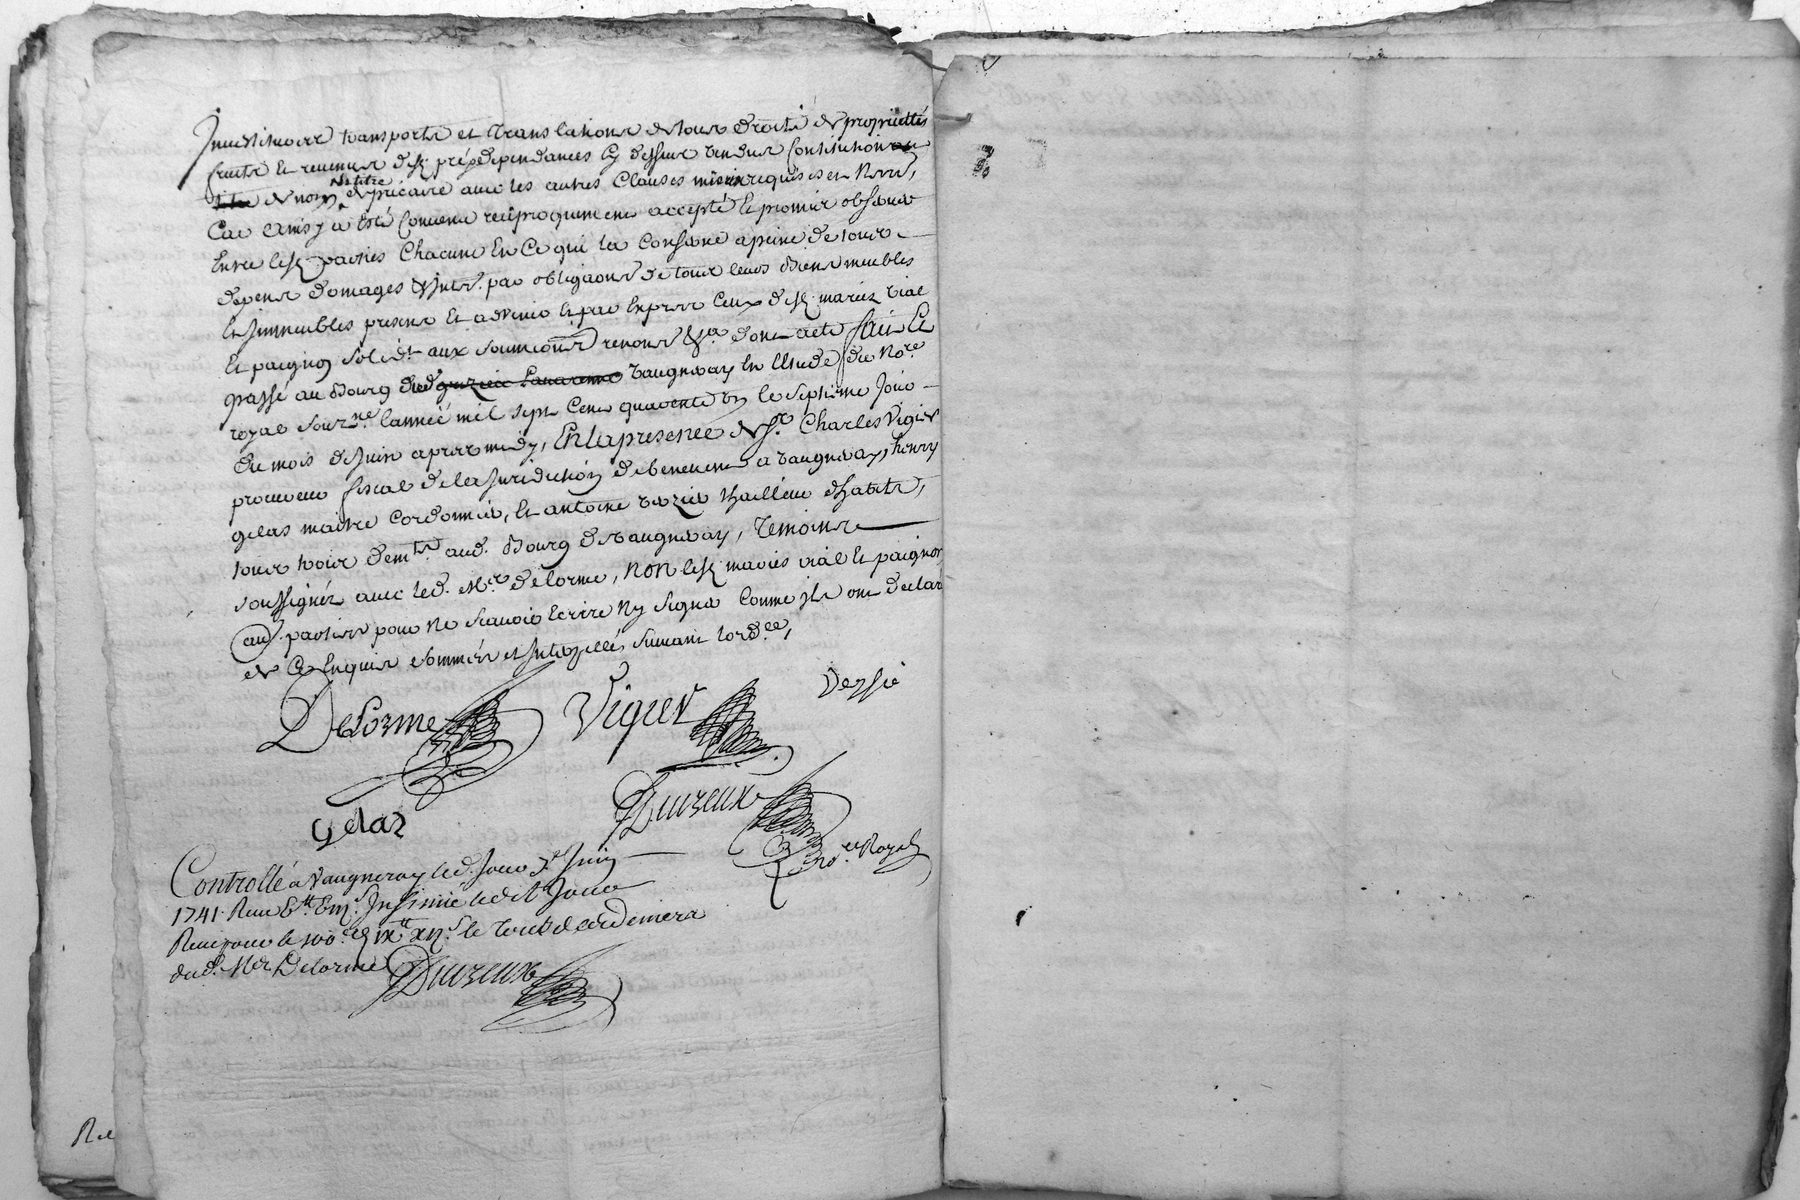 Jnvestitures transports et translations de tous droits de proprietés
fruits et revenus desq. prés dependances cy dessus vendus Constitution
de nom Nt titre de précaire avec les autres Clauses requises en
Car ainsy a esté Convenu reciproquement accepté et promis observer
Entre lesq. parties Chacune En Ce qui la Conserne apeine de tous
depens domages & Jnter. par obligaons de tous leurs Biens meubles
et Jmmeubles presens et advenir et par Exprés Ceux desq. mariez vial
Et paignon solidt. aux soumicions renons. &a. dont acte fait Et
passé au Bourg de Vaugneray En Etude du Nore.
royal sousne. lannée mil sept Cent quarente un le septieme Jour
du mois de Juin apres midy, En la presence de Sr. Charles Vigier
procureur fiscal de la Juridiction de benevent a Vaugneray, henry
gelas maitre Cordonnier, Et antoine thailleur dhabits,
tous trois demts. aud. Bourg de Vaugneray, temoins
soussignez avec led. Mr. Delorme, non lesq. mariés vial Et paignon
aud. parties pour ne scavoir Ecrire Ny signer Comme jls ont declaré
de Ce Enquis sommés et Jnterpellés suivant lordce,
Delorme Vigier
Gelaz Duvreux
Nore Royal
Controllé a Vaugneray led. Jour 7e Juin
1741. Reçu Jnsinué led. Jour
Reçu pour le 100e. le tout des deniers
dud. Mr Delorme Duvreux